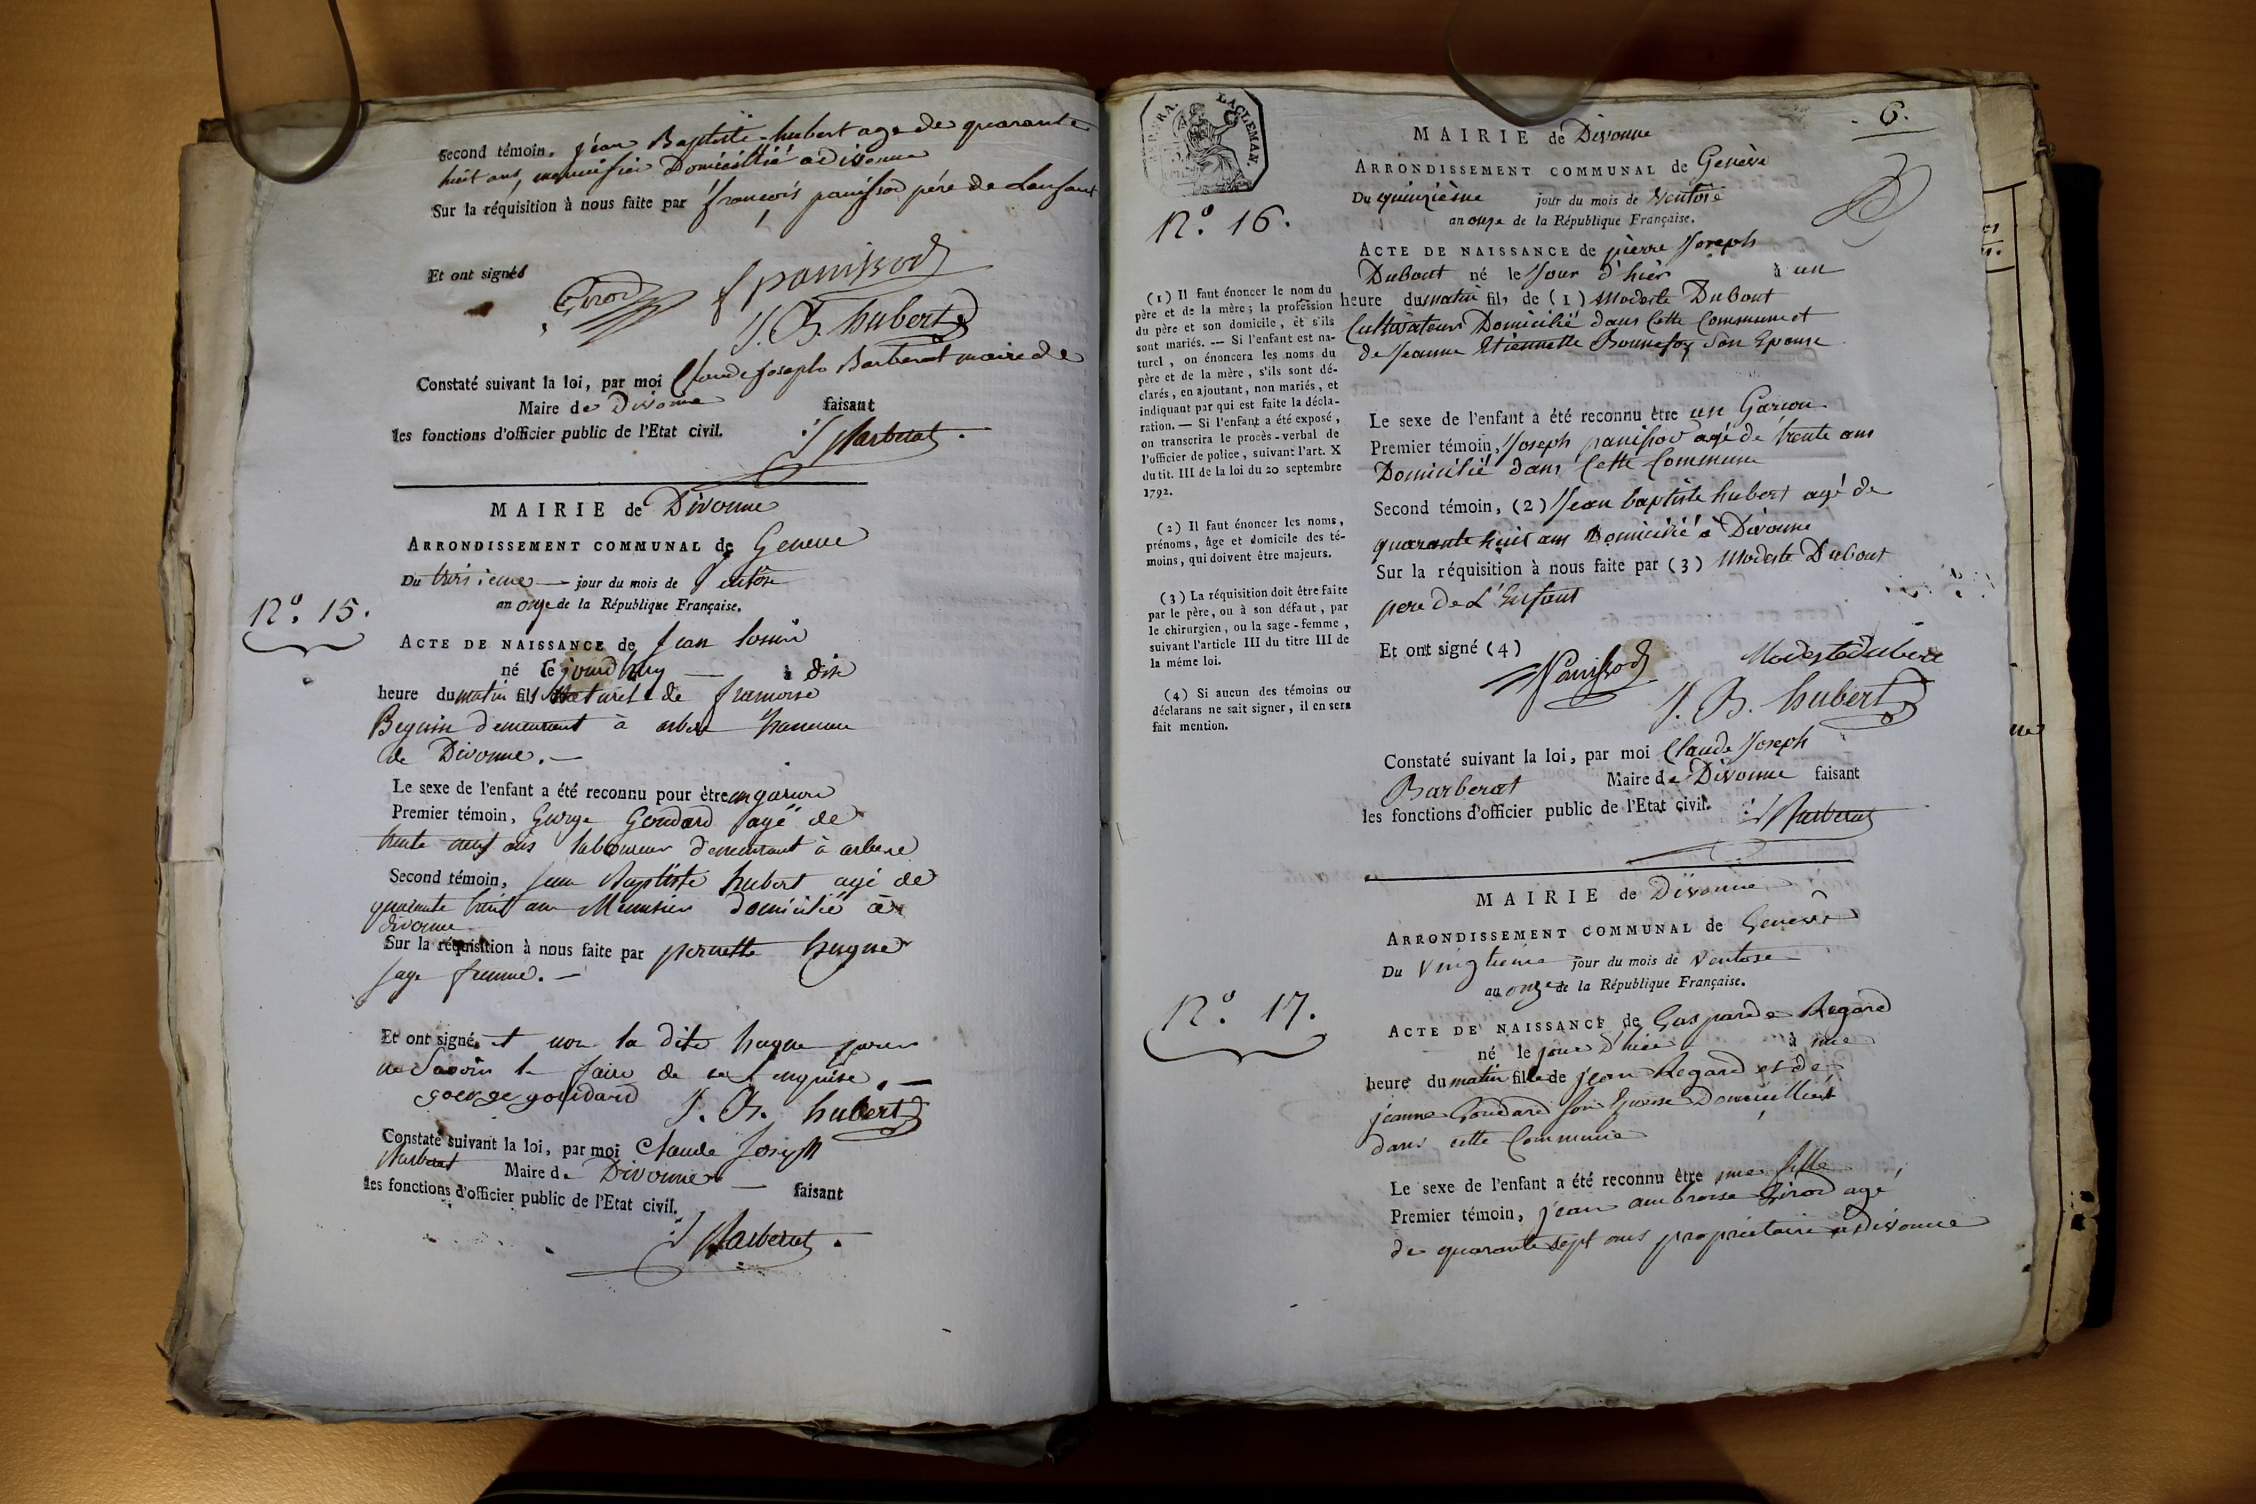 Second témoin, jéan Baptiste hubert age de quarante
huit ans, menuisier Domicillié a divonne
Sur la réquisition à nous faite par françois panissod pére de Lenfant
Et ont signés
Girod
f panissod
J. B. hubert
Constaté suivant la loi, par moi Claude joseph Barberat maire de
Maire de Divonne faisant
les fonctions d'officier public de l'Etat civil.
J Barberat.
MAIRIE de Divonne
ARRONDISSEMENT COMMUNAL de Geneve
Du troisieme jour du mois de Ventôse
an onze de la République Française.
N.° 15.
ACTE DE NAISSANCE de Jean
né le jourdhuy à dix
heure du matin fils Naturel de francoise
Beguin demeurant à arbere hameau
de Divonne.
Le sexe de l'enfant a été reconnu pour être un garcon
Premier témoin, George Goudard agé de
trente neuf ans laboureur demeurant à arbere
Second témoin, Jean Baptiste hubert agé de
quarante huit ans Menuisier domicilié à
divonne
Sur la réquisition à nous faite par pernette hugue
sage femme.
Et ont signé, et non la dite hugue pour
ne Savoir le faire de ce enquise.
goerge goudard J. B. hubert
Constaté suivant la loi, par moi Claude Joseph
Barberat Maire de Divonne faisant
les fonctions d'officier public de l'Etat civil.
J Barberat.
6.
LACLEMAN.
MAIRIE de Divonne
ARRONDISSEMENT COMMUNAL de Genève
Du quinzième jour du mois de Ventose
an onze de la République Française.
N.° 16.
ACTE DE NAISSANCE de pierre Joseph
Dubout né le Jour d'hier à un
heure du matin fils de (1) Modeste Dubout
Cultivateur Domicilié dans Cette Commune et
de Jeanne Etiennette Bonnefoy Son Epouse
Le sexe de l'enfant a été reconnu être un Garcon
Premier témoin, Joseph panissod agé de trente ans
Domicilié dans Cette Commune
Second témoin, (2) Jean baptiste hubert agé de
quarante huit ans Domicilié à Divonne
Sur la réquisition à nous faite par (3) Modeste Dubout
pere De L'Enfant
Et ont signé (4)
Panissod
J. B. hubert
Constaté suivant la loi, par moi Claude Joseph
Barberat Maire de Divonne faisant
les fonctions d'officier public de l'Etat civil.
J Barberat
(1) Il faut énoncer le nom du
père et de la mère; la profession
du père et son domicile, et s'ils
sont mariés. — Si l'enfant est na-
turel, on énoncera les noms du
père et de la mère, s'ils sont dé-
clarés, en ajoutant, non mariés, et
indiquant par qui est faite la décla-
ration. — Si l'enfant a été exposé,
on transcrira le procès-verbal de
l'officier de police, suivant l'art. X
du tit. III de la loi du 20 septembre
1792.
(2) Il faut énoncer les noms,
prénoms, âge et domicile des té-
moins, qui doivent être majeurs.
(3) La réquisition doit être faite
par le père, ou à son défaut, par
le chirurgien, ou la sage-femme,
suivant l'article III du titre III de
la même loi.
(4) Si aucun des témoins ou
déclarans ne sait signer, il en sera
fait mention.
MAIRIE de Divonne
ARRONDISSEMENT COMMUNAL de Genève
Du Vingtieme jour du mois de Ventose
an onze de la République Française.
N.° 17.
ACTE DE NAISSANCE de Gasparde Regard
né le jour d'hier à une
heure du matin fille de jean Regard et de
jeanne Goudard son Epouse Domicilliés
dans cette Commune
Le sexe de l'enfant a été reconnu être une fille
Premier témoin, jean ambroise Girod agé
de quarante sept ans propriétaire a divonne